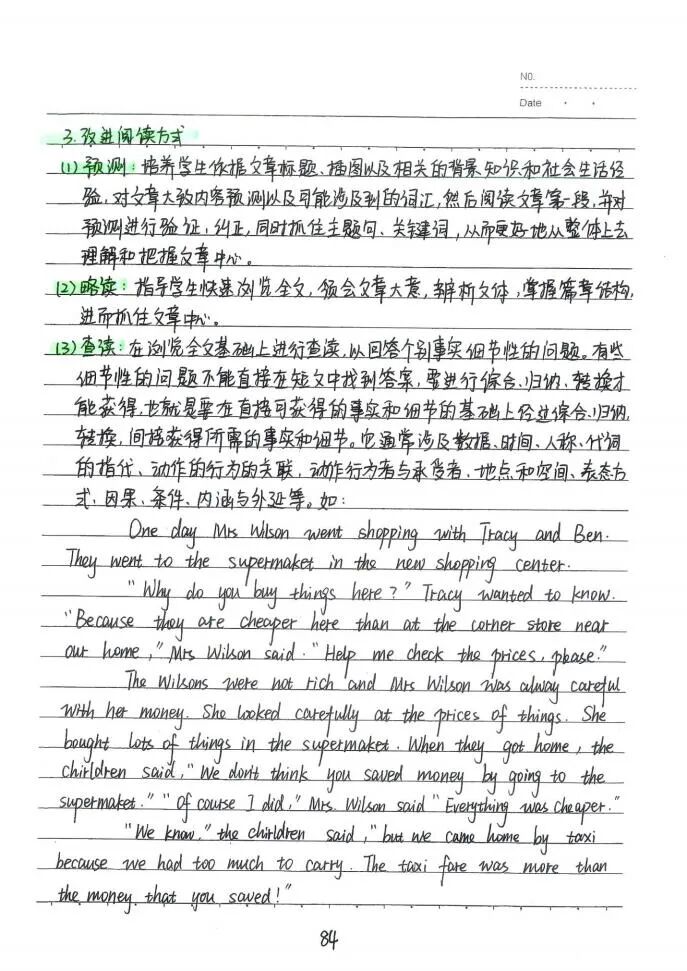 NO.
Date
3.改进阅读方式
(1)预测:培养学生依据文章标题、插图以及相关的背景知识和社会生活经
验,对文章大致内容预测以及可能涉及到的词汇,然后阅读文章第一段,并对
预测进行验证,纠正,同时抓住主题句、关键词,从而更好地从整体上去
理解和把握文章中心。
(2)略读:指导学生快速浏览全文,领会文章大意,辨析文体,掌握篇章结构,
进而抓住文章中心。
(3)查读:在浏览全文基础上进行查读,以回答个别事实细节性的问题。有些
细节性的问题不能直接在短文中找到答案,要进行综合、归纳、转换才
能获得,也就是要在直接可获得的事实和细节的基础上经过综合、归纳,
转换,间接获得所需的事实和细节。它通常涉及数据、时间、人称、代词
的指代、动作的行为的关联,动作行为者与承受者、地点和空间、表态方
式、因果、条件、内涵与外延等。如:
One day Mrs Wilson went shopping with Tracy and Ben.
They went to the supermaket in the new shopping center.
"Why do you buy things here?" Tracy wanted to know.
"Because they are cheaper here than at the corner store near
our home," Mrs Wilson said. "Help me check the prices, please."
The Wilsons were not rich and Mrs Wilson was alway careful
with her money. She looked carefully at the prices of things. She
bought lots of things in the supermaket. When they got home, the
chirldren said, "We don't think you saved money by going to the
supermaket." "Of course I did," Mrs. Wilson said "Everything was cheaper."
"We know." the chirldren said, "but we came home by taxi
because we had too much to carry. The taxi fare was more than
the money that you saved!"
84